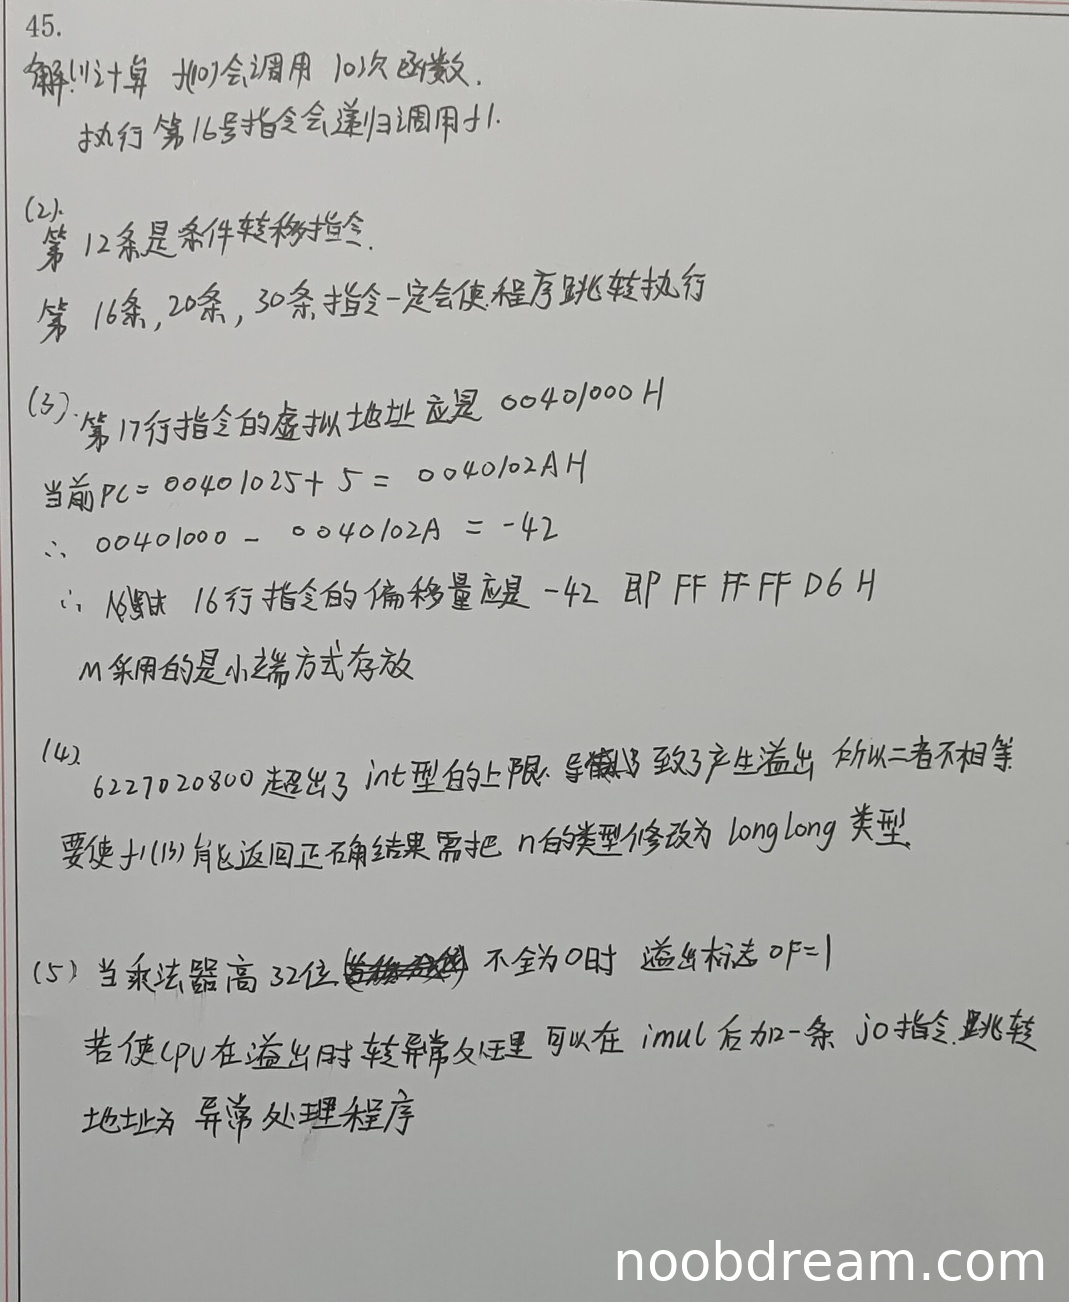 45.
解:(1)计算 f(10)会调用 10次函数.
执行第16号指令会递归调用f1.
(2).
第12条是条件转移指令.
第 16条,20条,30条指令一定会使程序跳转执行
(3).第17行指令的虚拟地址应是 00401000H
当前PC= 00401025+5= 0040102AH
∴ 00401000 - 0040102A = -42
∴ 16行指令的偏移量应是 -42 即 FF FF FF D6 H
M采用的是小端方式存放
(4).
6227020800超出了 int型的上限. 导致了产生溢出 所以二者不相等
要使f1(13)能返回正确结果需把 n的类型修改为 longlong 类型.
(5) 当乘法器高32位 不全为0时 溢出标志OF=1
若使CPU在溢出时转异常处理 可以在 imul后加一条 jo指令.跳转
地址为 异常处理程序
noobdream.com